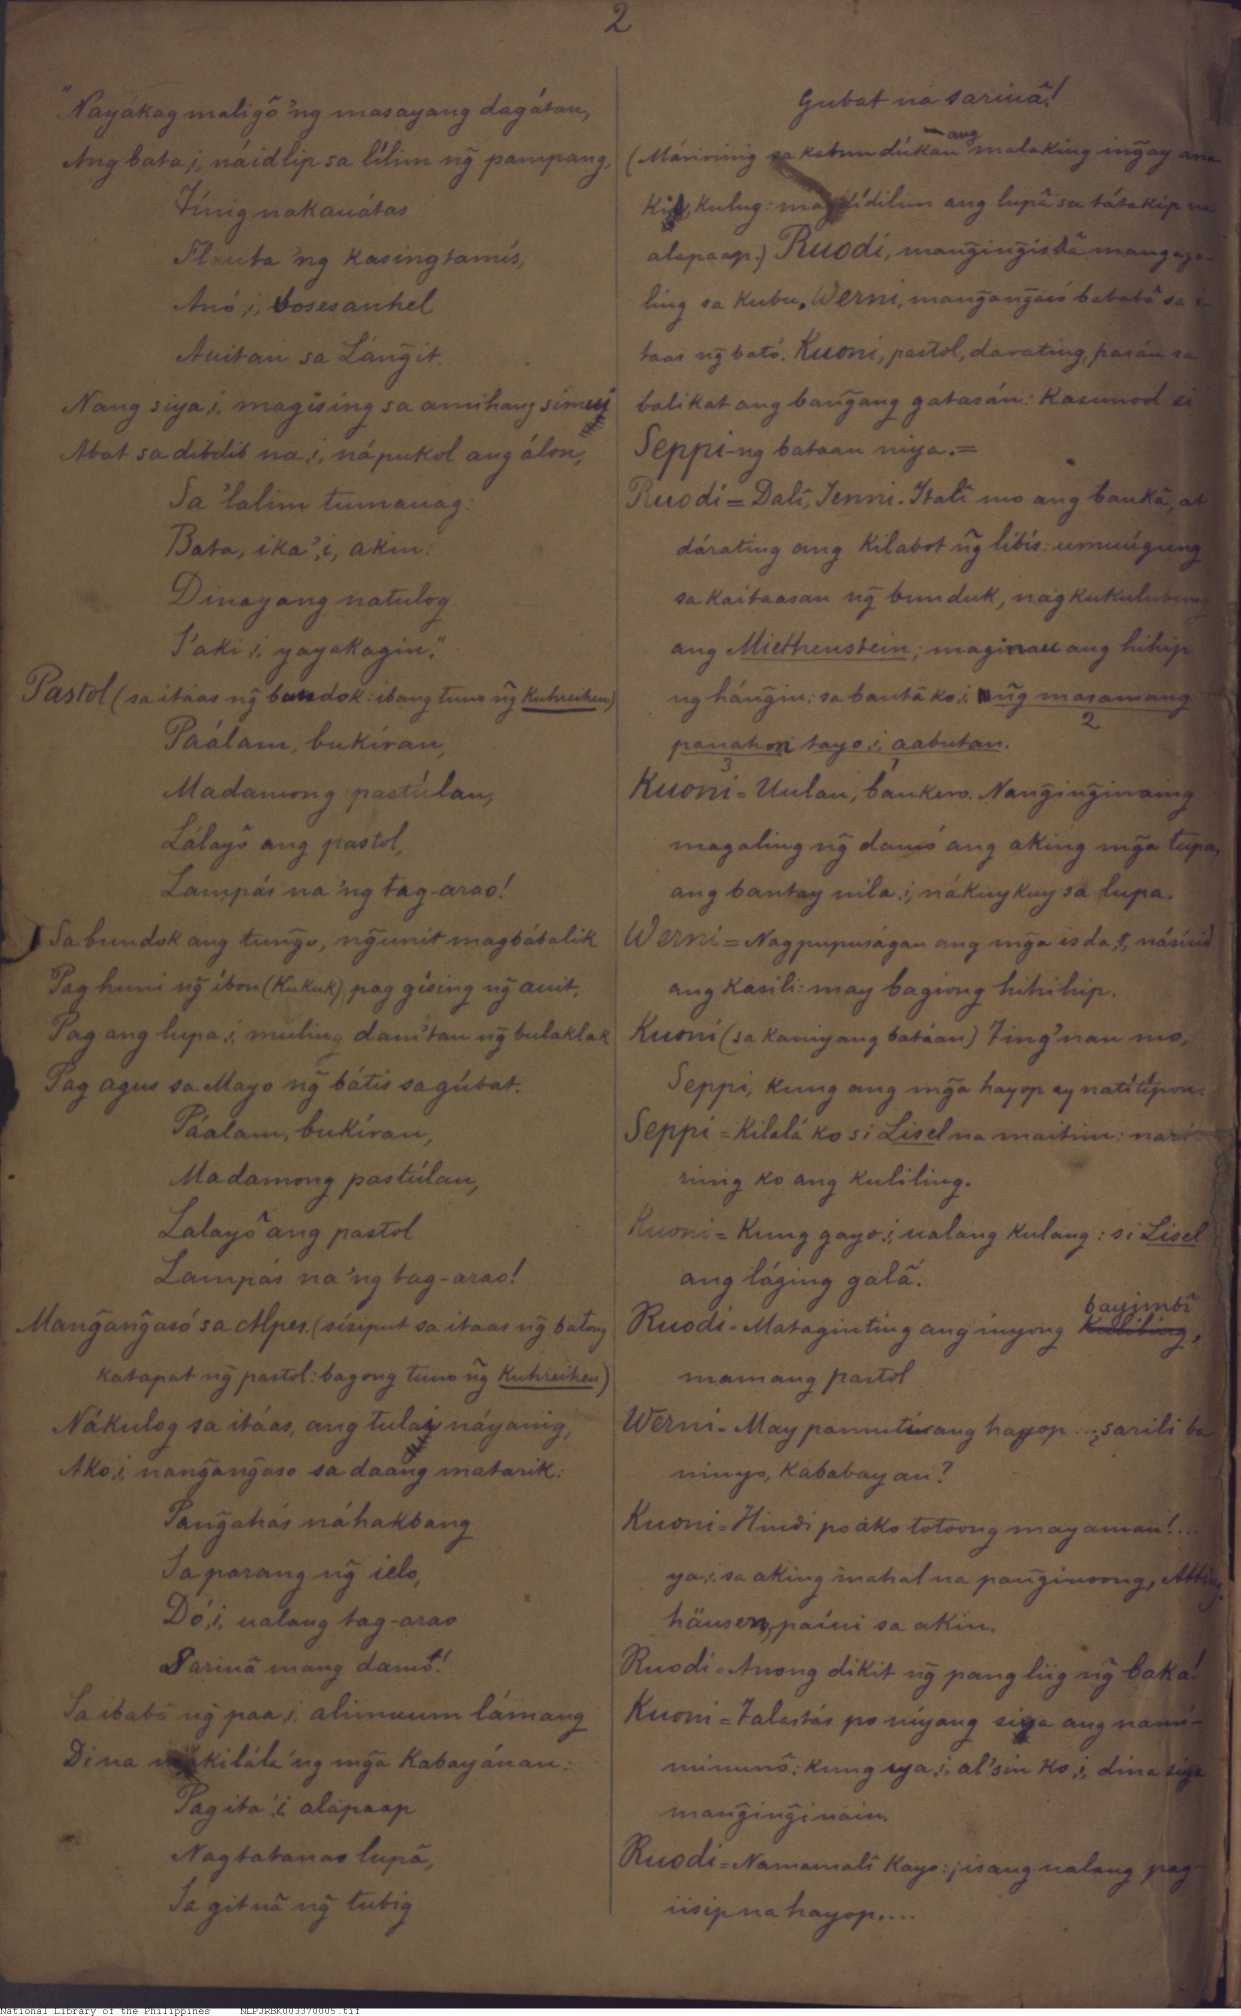 2
"Nayákag maligô 'ng masayang dagátan,
Ang bata,i, náidlip sa lílim ng̃ pampang,
Tínig nakauátas
Flauta 'ng kasingtamís,
Anó,i, boses anhel
Auitan sa Láng̃it.
Nang siya,i, magísing sa amihang símuy
Abat sa dibdib na,i, nápukol ang álon,
Sa 'lalim tumauag:
Bata, ika',i, akin:
Dinayang natulog
S'aki,i, yayakagin."
Pastol (sa itáas ng̃ bundok: ibang tuno ng̃ Kuhreihen)
Páálam, bukíran,
Madamong pastúlan,
Lálayô ang pastol,
Lampás na 'ng tag-arao!
Sa bundok ang tung̃o, ng̃unit magbábalik
Pag huni ng̃ íbon (Kukuk), pag gísing ng̃ auit,
Pag ang lupa,i, muling dam'tan ng̃ bulaklak
Pag agus sa Mayo ng̃ bátis sa gúbat.
Páalam, bukíran,
Madamong pastúlan,
Lalayô ang pastol
Lampás na 'ng tag-arao!
Mang̃ang̃asó sa Alpes. (sísiput sa itaas ng̃ batong
katapat ng̃ pastol: bagong tuno ng̃ Kuhreihen)
Nákulog sa itáas, ang tulay náyanig,
Ako,i, nang̃ang̃aso sa daang matarik:
Pang̃ahás náhakbang
Sa parang ng̃ ielo,
Dó,i, ualang tag-arao
Sariuâ mang damó!
Sa ibabâ ng̃ paa,i, alimuum lámang
Di na makilála 'ng mg̃a Kabayánan:
Pagita',i, alapaap
Nagtatanao lupâ,
Sa gitnâ ng̃ tubig
Gubat na sariuâ!
(Máririnig sa dúkan ang malaking ing̃ay
Kulug: ang lupâ sa tátakip na
alapaap.) Ruodi, mang̃ing̃isdâ
ling sa kubu. Werni, mang̃ang̃asó bababâ sa i-
taas ng̃ bató. Kuoni, pastol, darating, pasán sa
balikat ang bang̃ang gatasán: Kasunod si
Seppi-ng bataan niya.=
Ruodi = Dalî, Jenni. Italî mo ang bankâ, at
dárating ang Kilabot ng̃ libís: umuúgung
sa kaitaasan ng̃ bunduk, nagkukulubung
ang Miethenstein; maginau ang hihip
ng háng̃in: sa bantâ ko,i, ng̃ masamang
2
panahon tayo,i, aabutan.
3 1
Kuoni = Uulan, bankero. Nang̃ing̃inaing
magaling ng̃ damó ang aking mg̃a tupa,
ang bantay nila,i, nákuykuy sa lupa.
Werni = Nagpupuságan ang mg̃a isda,t, násisid
ang kasili: may bagiong hihihip.
Kuoni (sa kaniyang batáan) Ting'nan mo,
Seppi, kung ang mg̃a hayop ay natítípon.
Seppi = Kilalá ko si Lisel na maitim: nari-
rinig ko ang kuliling.
Kuoni = Kung gayo,i, ualang kulang: si Lisel
ang láging galâ.
bayimbî
Ruodi = Mataginting ang inyong kuliling,
mamang pastol
Werni = May pamutiu ang hayop ...; sarili ba
ninyo, kababayan?
Kuoni = Hindi po ako totoong mayaman! ...
ya,i, sa aking mahal na pang̃inoong, Atting-
häusen, paíui sa akin.
Ruodi = Anong dikit ng̃ pang liig ng̃ baka!
Kuoni = Talastás po niyang siya ang namú-
mununô: kung ,i, al'sin ko,i, dina siya
mang̃ing̃inain.
Ruodi = Namamalî Kayo: ¡isang ualang pag-
iisip na hayop....
National Library of the Philippines NLPJRBK003370005.tif